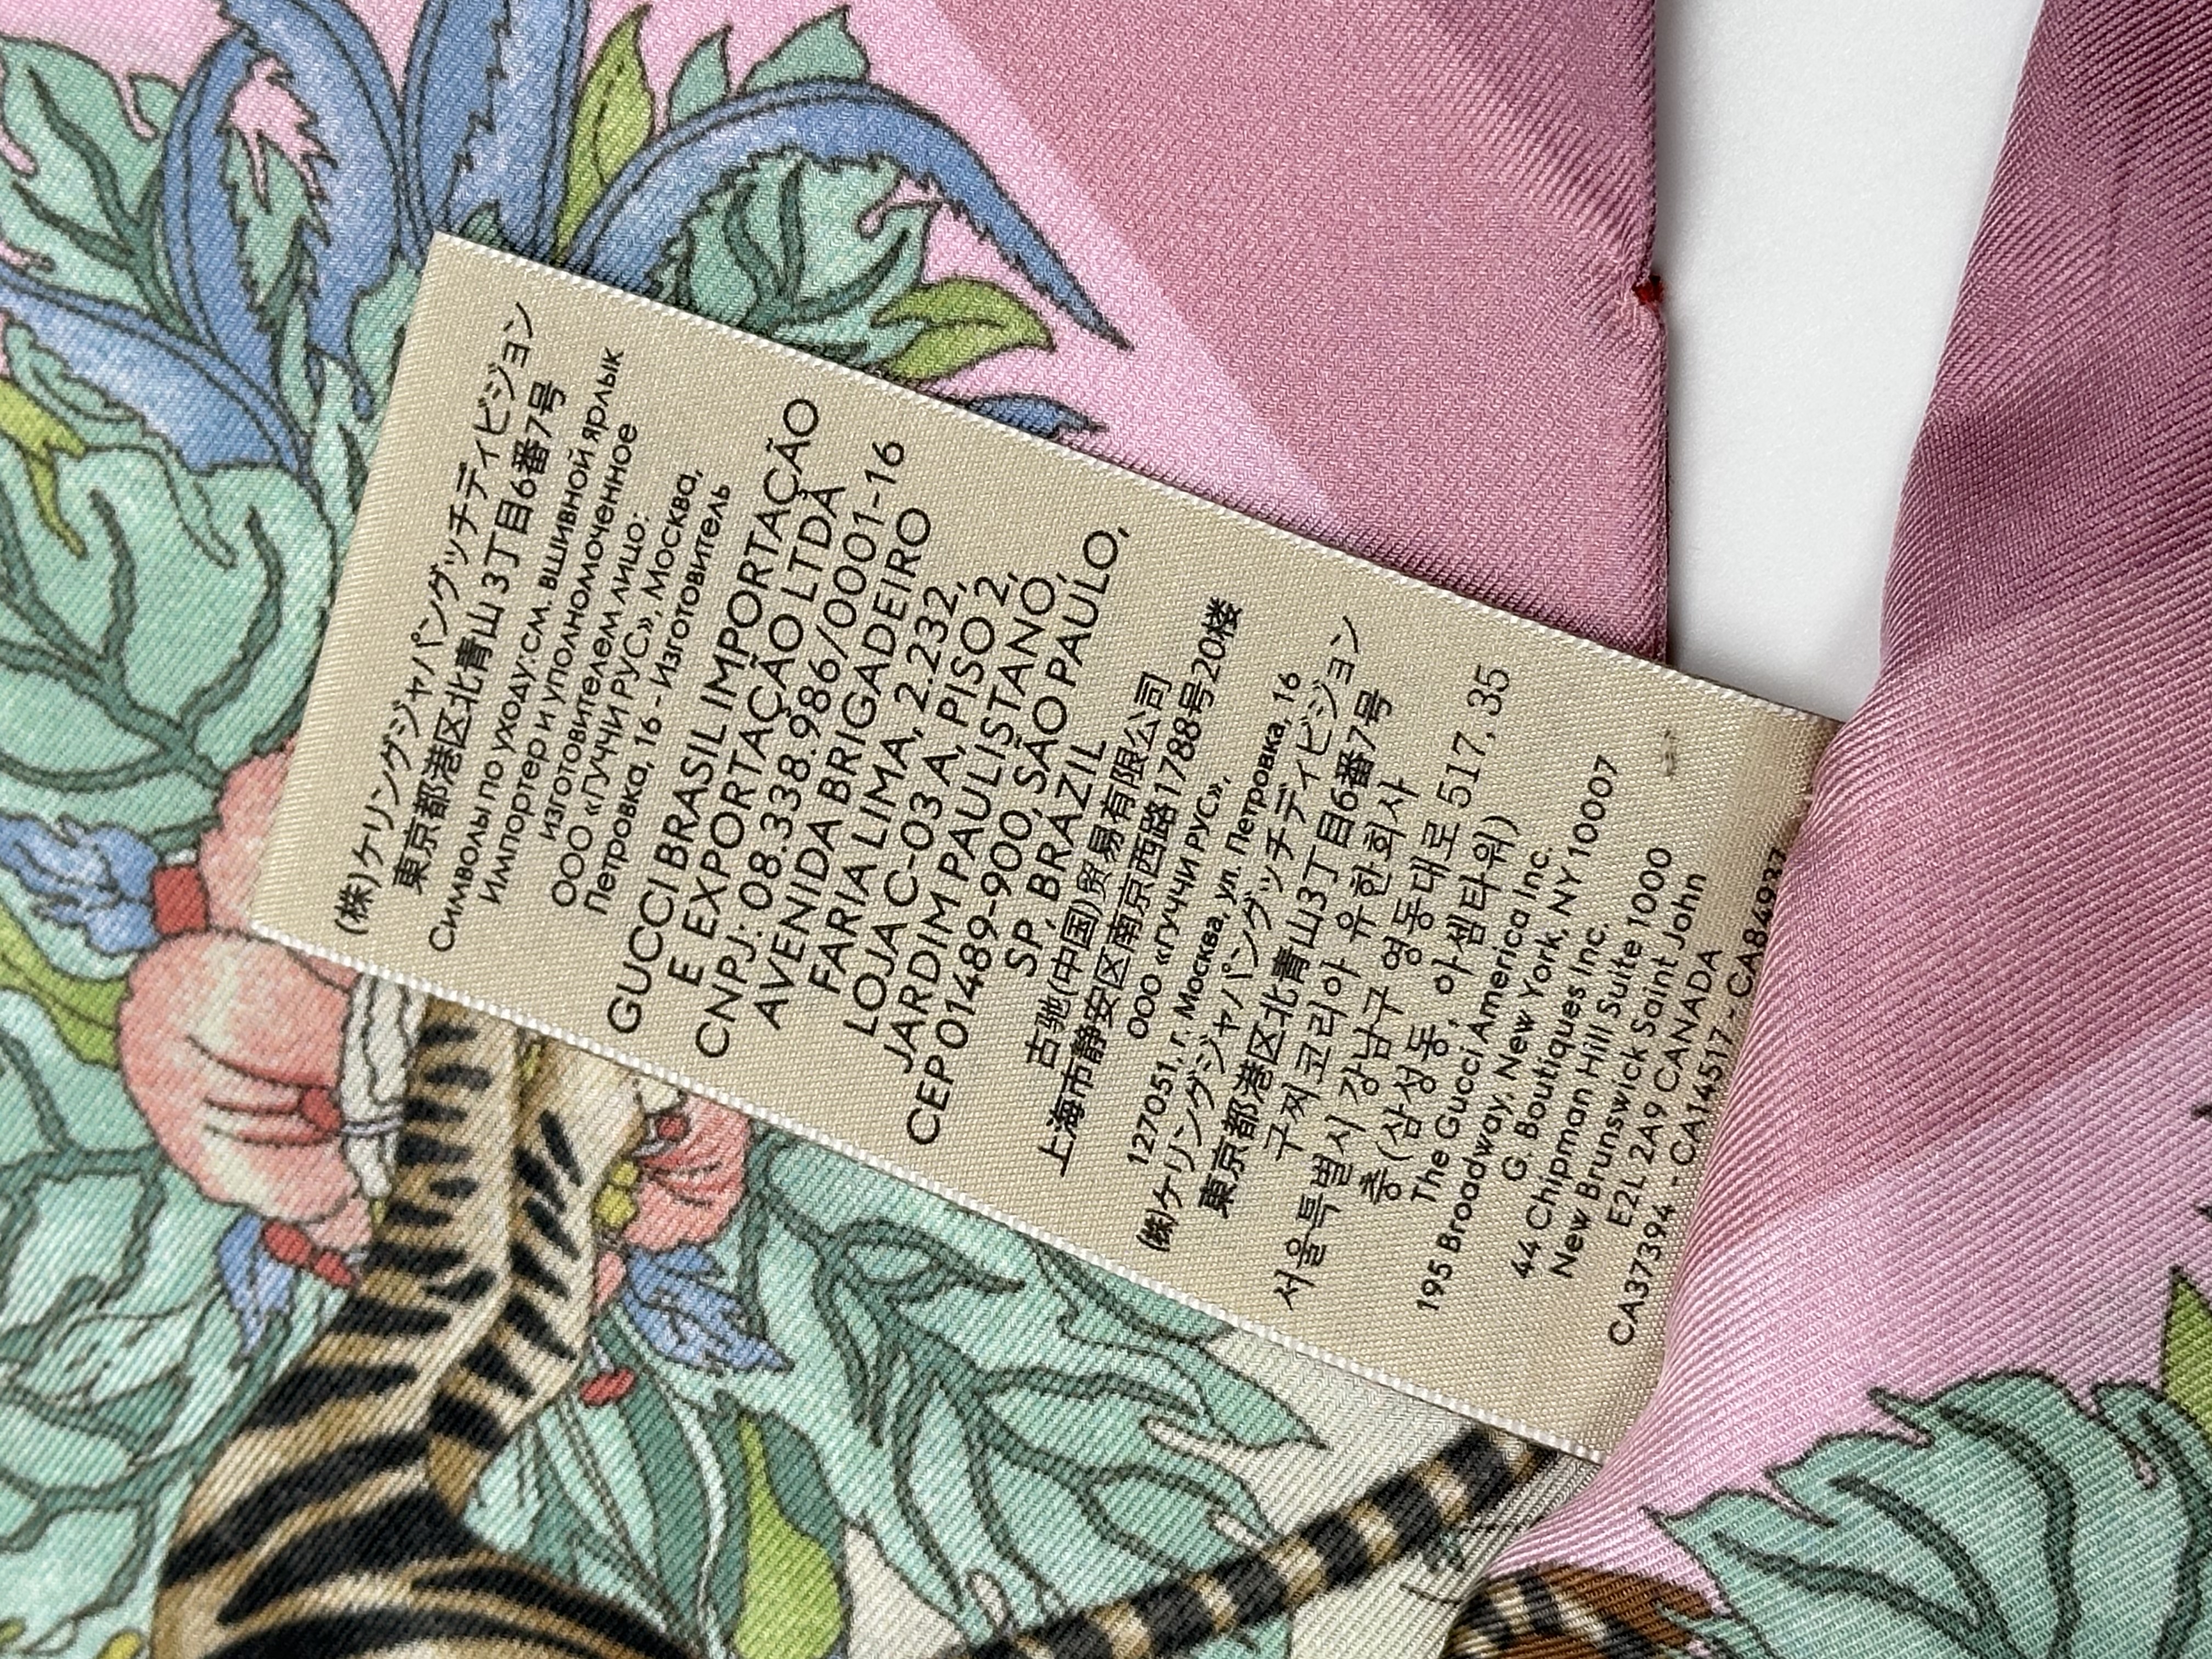 (株)ケリングジャパングッチディビジョン
東京都港区北青山3丁目6番7号
Символы по уходу:см. вшивной ярлык
Импортер и уполномоченное
изготовителем лицо:
ООО «ГУЧЧИ РУС», Москва,
Петровка, 16 - Изготовитель
GUCCI BRASIL IMPORTAÇÃO
E EXPORTAÇÃO LTDA
CNPJ: 08.338.986/0001-16
AVENIDA BRIGADEIRO
FARIA LIMA, 2.232,
LOJA C-03 A, PISO 2,
JARDIM PAULISTANO,
CEP 01489-900, SÃO PAULO,
SP, BRAZIL
古驰(中国)贸易有限公司
上海市静安区南京西路1788号20楼
ООО «ГУЧЧИ РУС»,
127051, г. Москва, ул. Петровка, 16
(株)ケリングジャパングッチディビジョン
東京都港区北青山3丁目6番7号
구찌코리아 유한회사
서울특별시 강남구 영동대로 517, 35
층 (삼성동, 아셈타워)
The Gucci America Inc.
195 Broadway, New York, NY 10007
G. Boutiques Inc.
44 Chipman Hill Suite 1000
New Brunswick Saint John
E2L 2A9 CANADA
CA37394 - CA14517 - CA84937